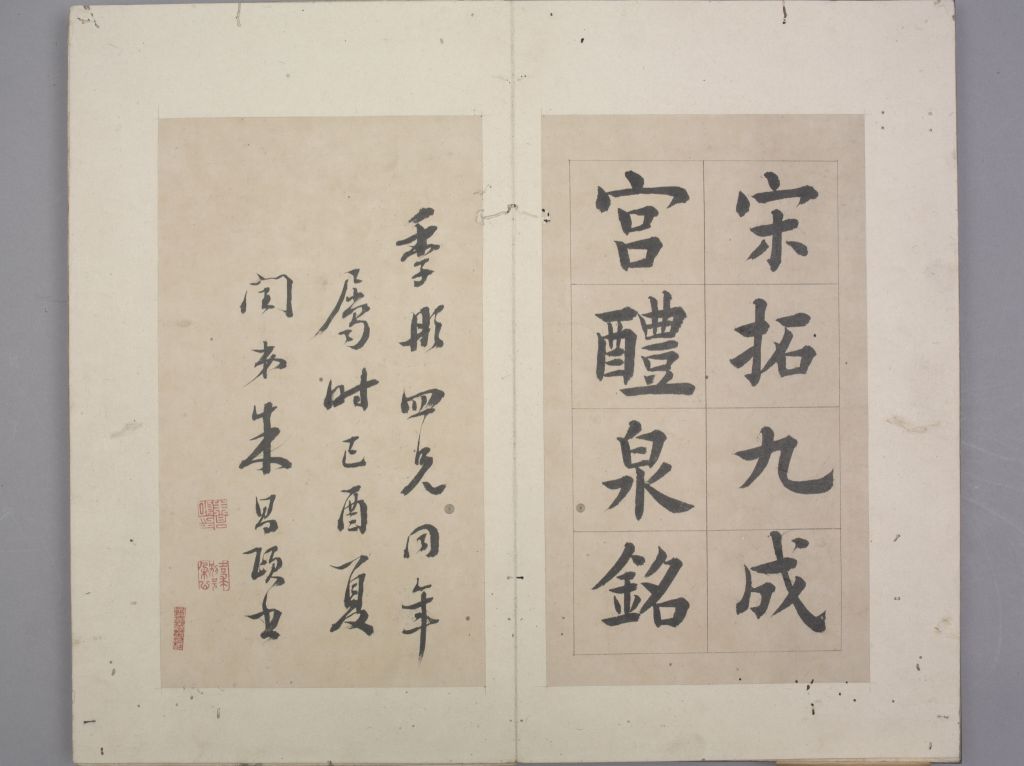 宋拓九成
宮醴泉銘
季彤四兄同年
屬時己酉夏
閏弟朱昌頤書